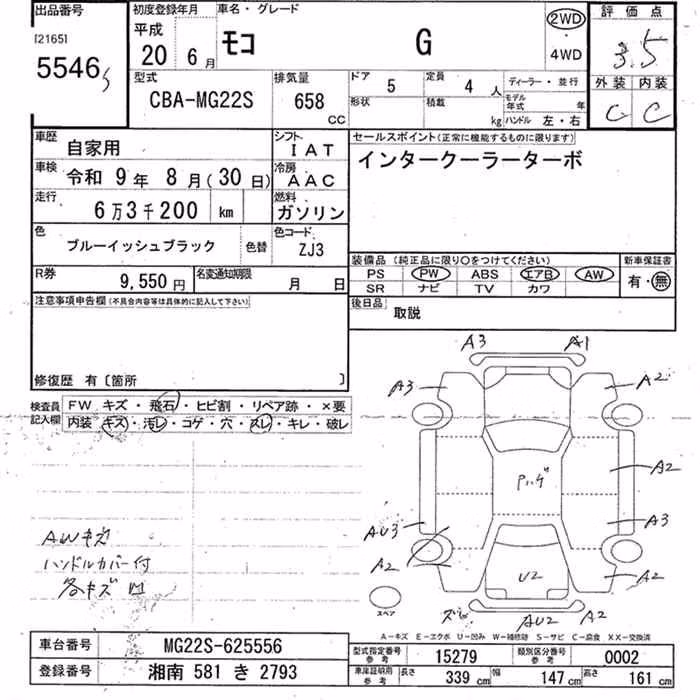 出品番号 初度登録年月 車名・グレード 評価点
[2165] 平成
5546 20年 6月 モコ G 2WD ・ 4WD 3.5
型式 排気量 ドア 5 定員 4人 ディーラー・並行 外装 内装
CBA-MG22S 658 CC 形状 積載 kg モデル年式 年 ハンドル 左・右 C C
車歴 自家用 シフト IAT セールスポイント(正常に機能するものに限ります)
車検 令和 9年 8月(30日) 冷房 AAC インタークーラーターボ
走行 6万3千200 km 燃料 ガソリン
色 ブルーイッシュブラック 色替 色コード ZJ3
装備品(純正品に限り〇をつけてください) 新車保証書
R券 9,550円 名変通知期限 月 日 PS PW ABS エアB AW 有・無
SR ナビ TV カワ
注意事項申告欄(不具合内容等は具体的に記入して下さい) 後日品 取説
修復歴 有〔箇所 〕
検査員記入欄 FW キズ・飛石・ヒビ割・リペア跡・×要
内装 キズ・汚レ・コゲ・穴・スレ・キレ・破レ
A3 A1
A3 A2
A2
AU3 A3
A2 U2 A2
AU2 A2
AWキズ
ハンドルカバー付
各キズ凹
スペア
A-キズ E-エクボ U-凹み W-補修跡 S-サビ C-腐食 XX-交換済
車台番号 MG22S-625556 型式指定番号 参考 15279 類別区分番号 参考 0002
登録番号 湘南 581 き 2793 車庫証明用 参考 長さ 339 cm 幅 147 cm 高さ 161 cm